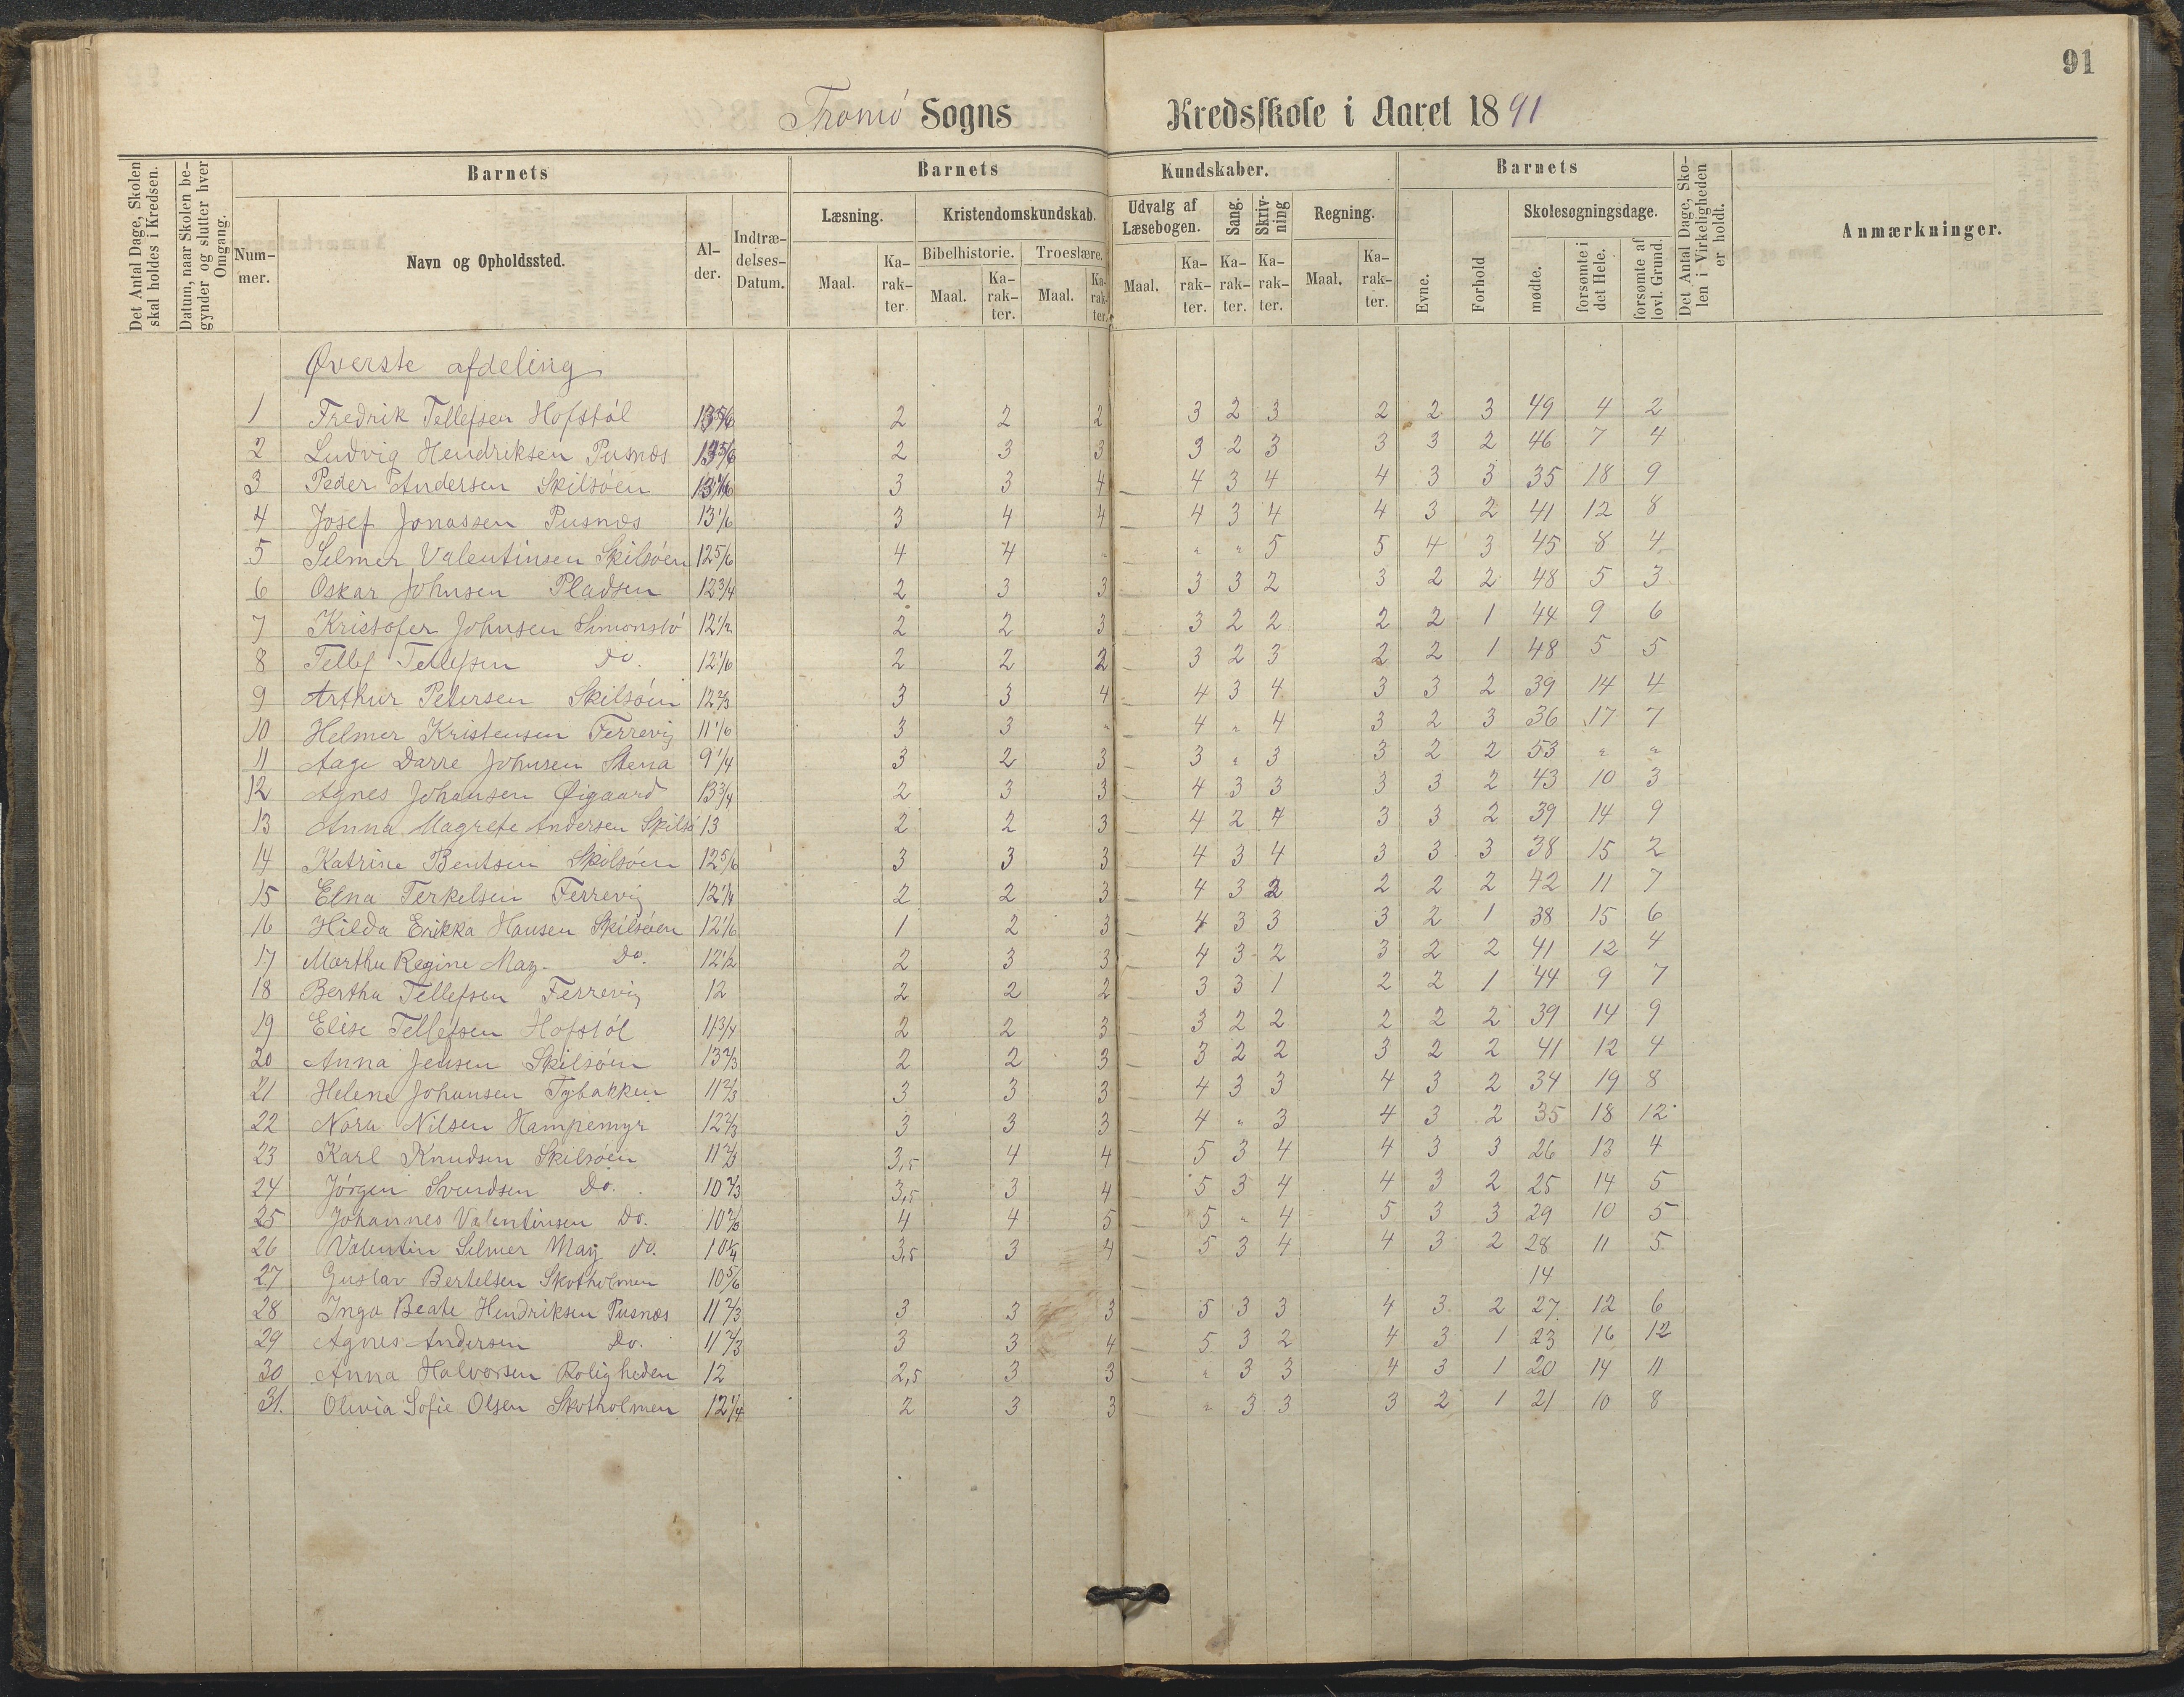 91
Tromö Sogns Kredsskole i Aaret 1891
Det Antal Dage, Skolen skal holdes i Kredsen.
Datum, naar Skolen begynder og slutter hver Omgang.
Barnets
Nummer.
Navn og Opholdssted.
Alder.
Indtrædelses-Datum.
Barnets Kundskaber.
Læsning.
Maal.
Karakter.
Kristendomskundskab.
Bibelhistorie.
Maal.
Karakter.
Troeslære.
Maal.
Karakter.
Udvalg af Læsebogen.
Maal.
Karakter.
Sang.
Karakter.
Skrivning
Karakter.
Regning.
Maal.
Karakter.
Barnets
Evne.
Forhold
Skolesøgningsdage.
mødte.
forsømte i det Hele.
forsømte af lovl. Grund.
Det Antal Dage, Skolen i Virkeligheden er holdt.
Anmærkninger.
Øverste afdeling
1 Fredrik Tellefsen Hofstöl 13 5/6 2 2 2 3 2 3 2 2 3 49 4 2
2 Ludvig Hendriksen Pusnæs 13 5/6 2 3 3 3 2 3 3 3 2 46 7 4
3 Peder Andersen Skilsöen 13 1/6 3 3 4 4 3 4 4 3 3 35 18 9
4 Josef Jonassen Pusnæs 13 1/6 3 4 4 4 3 4 4 3 2 41 12 8
5 Selmer Valentinsen Skilsöen 12 5/6 4 4 " " " 5 5 4 3 45 8 4
6 Oskar Johnsen Pladsen 12 3/4 2 3 3 3 3 2 3 2 2 48 5 3
7 Kristofer Johnsen Simonstö 12 1/2 2 2 3 3 2 2 2 2 1 44 9 6
8 Tellef Tellefsen do. 12 1/6 2 2 2 3 2 3 2 2 1 48 5 5
9 Arthur Petersen Skilsöen 12 2/3 3 3 4 4 3 4 3 3 2 39 14 4
10 Helmer Kristensen Ferrevig 11 1/6 3 3 " 4 " 4 3 2 3 36 17 7
11 Aage Darre Johnsen Stena 9 1/4 3 2 3 3 " 3 3 2 2 53 " "
12 Agnes Johansen Øigaard 13 3/4 2 3 3 4 3 3 3 3 2 43 10 3
13 Anna Magrete Andersen Skilsö 13 2 2 3 4 2 4 3 3 2 39 14 9
14 Katrine Bentsen Skilsöen 12 5/6 3 3 3 4 3 4 3 3 3 38 15 2
15 Elna Terkelsen Ferrevig 12 1/4 2 2 3 4 3 2 2 2 2 42 11 7
16 Hilda Erikka Hansen Skilsöen 12 1/6 1 2 3 4 3 3 3 2 1 38 15 6
17 Marthe Regine May Do. 12 1/2 2 3 3 4 3 2 3 2 2 41 12 4
18 Bertha Tellefsen Ferrevig 12 2 2 2 3 3 1 2 2 1 44 9 7
19 Elise Tellefsen Hofstöl 11 3/4 2 2 3 3 2 2 2 2 2 39 14 9
20 Anna Jensen Skilsöen 13 2/3 2 2 3 3 2 2 3 2 2 41 12 4
21 Helene Johansen Tybakken 11 2/3 3 3 3 4 3 3 4 3 2 34 19 8
22 Nora Nilsen Hampemyr 12 2/3 3 3 3 4 " 3 4 3 2 35 18 12
23 Karl Knudsen Skilsöen 11 2/3 3,5 4 4 5 3 4 4 3 3 26 13 4
24 Jörgen Svendsen Do. 10 2/3 3,5 3 4 5 3 4 4 3 2 25 14 5
25 Johannes Valentinsen Do. 10 2/3 4 4 5 5 " 4 5 3 3 29 10 5
26 Valentin Selmer May do. 10 1/4 3,5 3 4 5 3 4 4 3 2 28 11 5
27 Gustav Bertelsen Skotholmen 10 5/6 14
28 Inga Beate Hendriksen Pusnæs 11 2/3 3 3 3 5 3 3 4 3 2 27 12 6
29 Agnes Andersen Do. 11 2/3 3 3 4 5 3 2 4 3 1 23 16 12
30 Anna Halvorsen Roligheden 12 2,5 3 3 " 3 3 4 3 1 20 14 11
31. Olivia Sofie Olsen Skotholmen 12 1/4 2 3 3 " 3 3 3 2 1 21 10 8